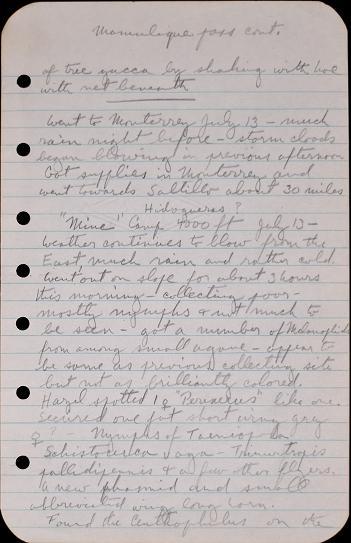 Mamulique pass cont.
of tree yucca by shaking with hoe
with net beneath
Went to Monterrey July 13 – much
rain night before – storm clouds
began blowing in previous afternoon
Got supplies in Monterrey and
went towards Saltillo about 30 miles
Hidogueras?
"Mine" Camp 4000 ft July 13 –
Weather continues to blow from the
East much rain and rather cold.
Went out on slope for about 3 hours
this morning – collecting poor –
mostly nymphs & not much to
be seen – got a number of Melanoplids
from among small agave – appear to
be same as previous collecting site
but not as brilliantly colored.
Hazel spotted 1 ♀ "Perixerus" like one.
Secured one fat short wing grey
♀ – Nymphs of
Schistocerca vaga – Trimerotropis
pallidipennis & a few other fliers.
A new phasmid and small
abbreviated wing long horn.
Found the Ceuthophilus on the